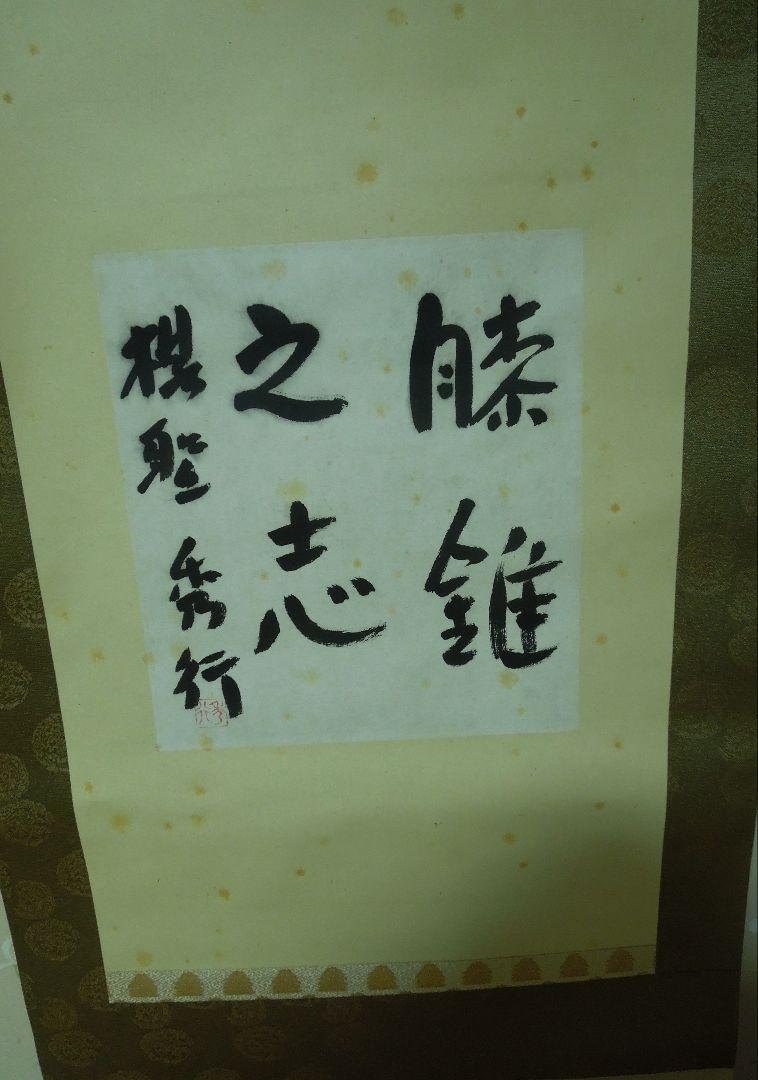 膝錐
之志
棋聖 秀行